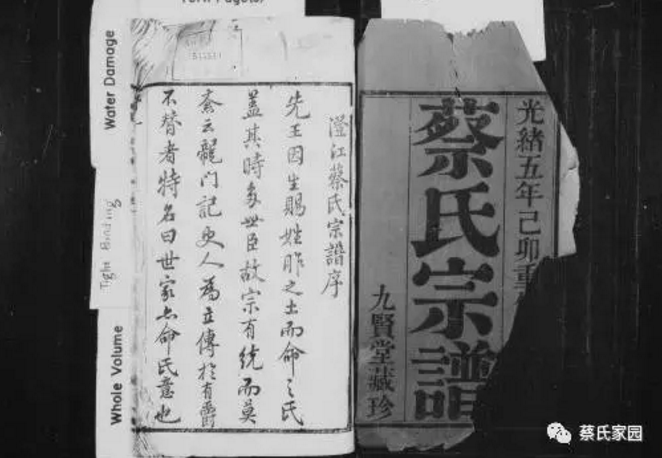 光緒五年己卯重
蔡氏宗譜
九賢堂藏珍
澄江蔡氏宗譜序
先王因生賜姓胙之土而命之氏
蓋其時多世臣故宗有統而莫
紊云龍門記史人為立傳於有爵
不替者特名曰世家亦命氏意也
Water Damage
Tight Binding
Whole Volume
蔡氏家园